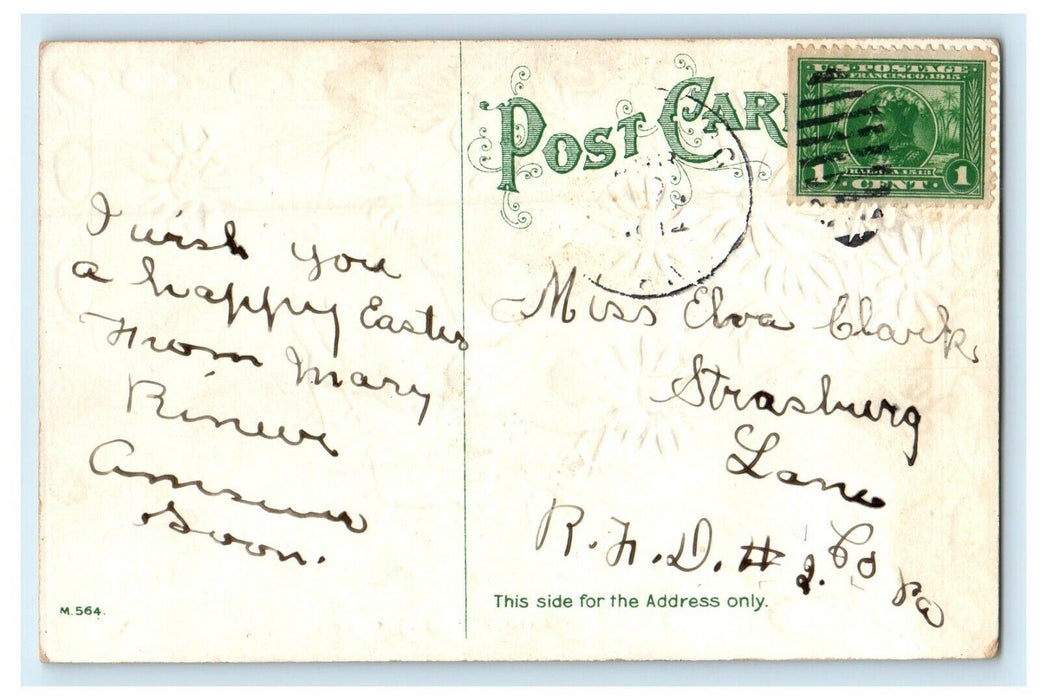 I wish you
a happy Easter
From Mary
Rineer
Answer
Soon.
M.564.
POST CARD
U.S. POSTAGE
SAN FRANCISCO, 1915
BALBOA 1513
1 CENT 1
Miss Elva Clark,
Strasburg
Lanc
R.F.D. # 2. Co Pa
This side for the Address only.